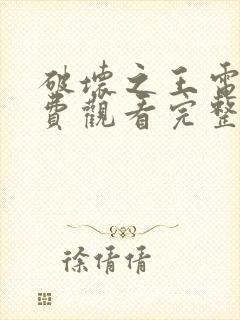 破壞之王雷
費觀看完整
徐倩倩